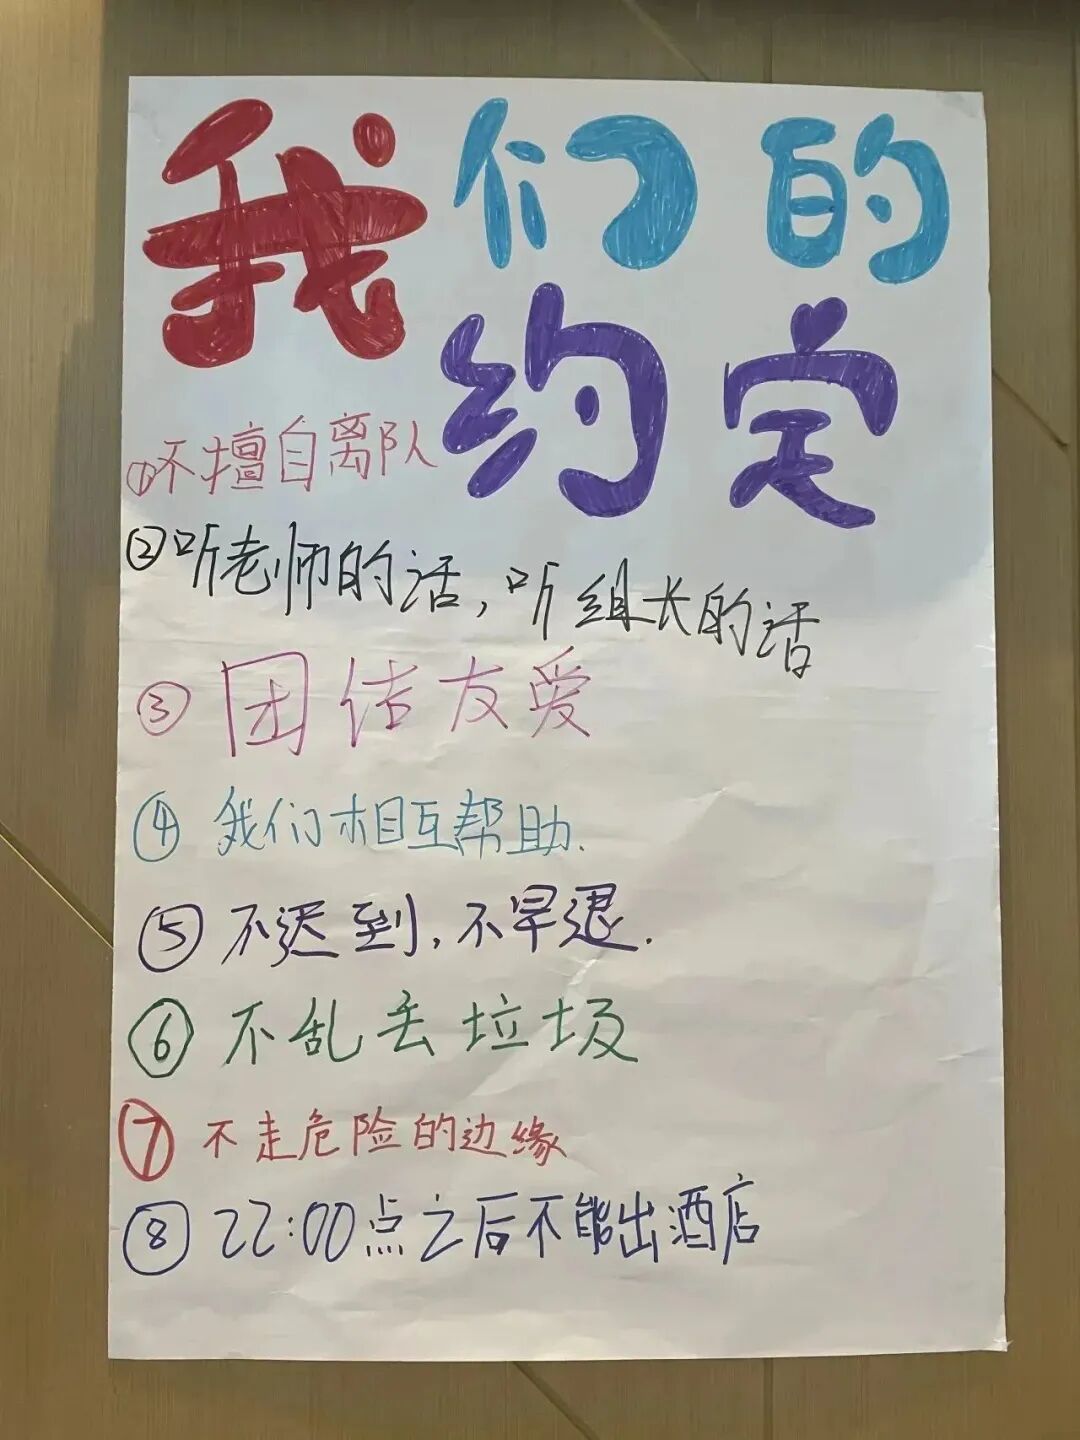 我们的
约定
①不擅自离队
②听老师的话，听组长的话
③团结友爱
④我们相互帮助.
⑤不迟到，不早退.
⑥不乱丢垃圾
⑦不走危险的边缘
⑧22:00点之后不能出酒店